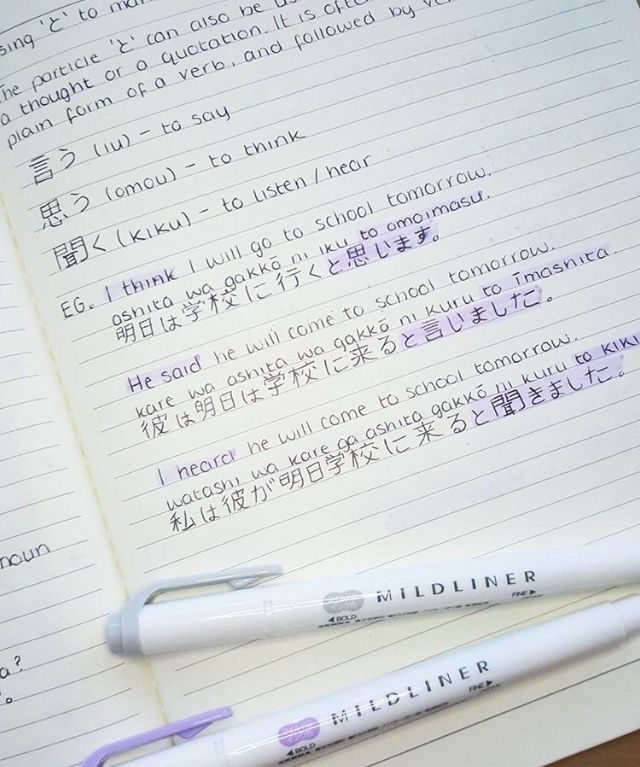 'と' to
The particle 'と' can also be
a thought or a quotation. It is
plain form of a verb, and followed by
言う (iu) - to say
思う (omou) - to think
聞く (kiku) - to listen/hear
EG. I think I will go to school tomorrow.
ashita wa gakkō ni iku to omoimasu.
明日は学校に行くと思います。
He said he will come to school tomorrow.
kare wa ashita wa gakkō ni kuru to īmashita.
彼は明日は学校に来ると言いました。
I heard he will come to school tomorrow.
watashi wa kare ga ashita gakkō ni kuru to kiki
私は彼が明日学校に来ると聞きました。
noun
a?
。
MILDLINER
BOLD
FINE
MILDLINER
BOLD
FINE